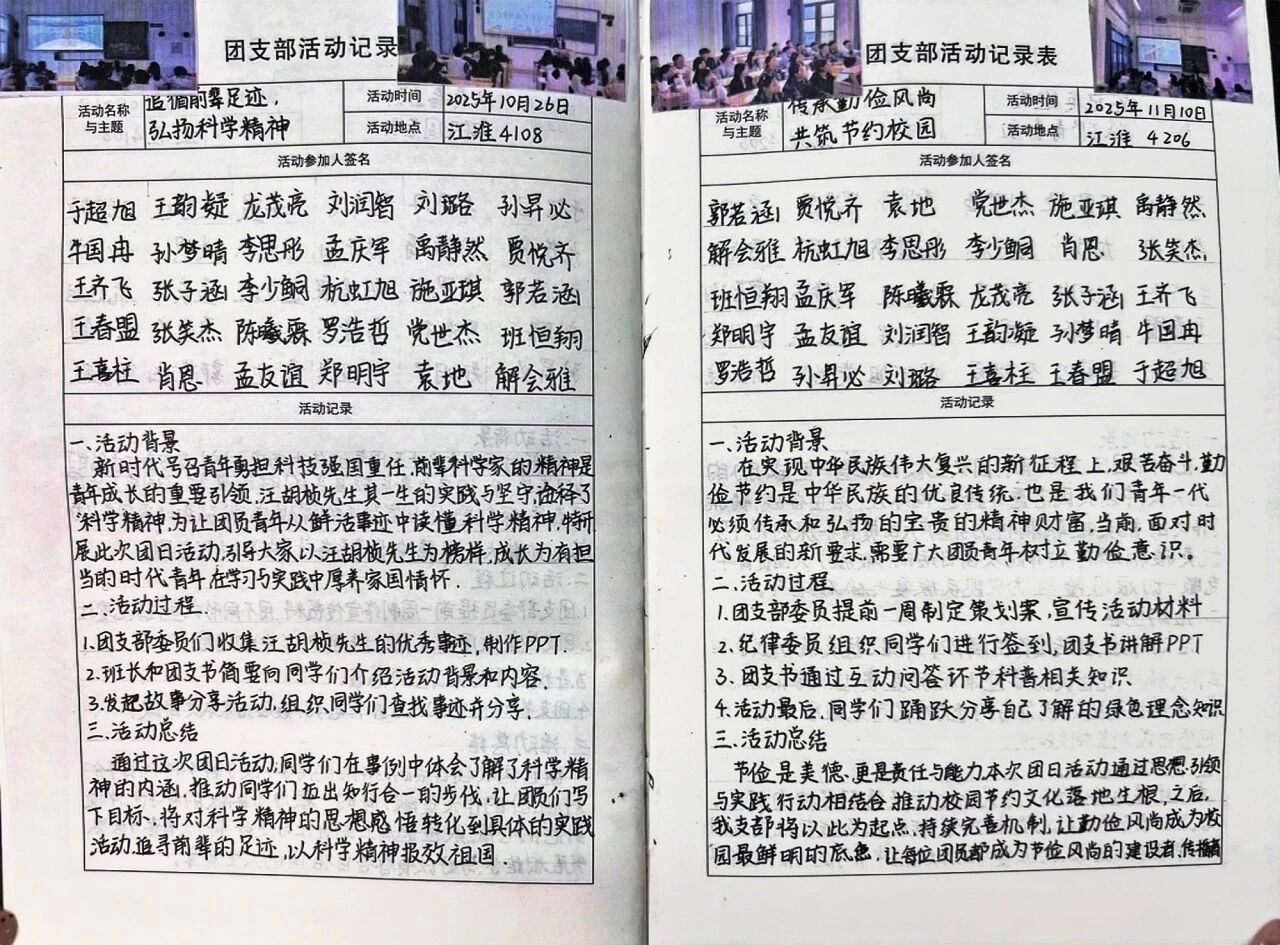 团支部活动记录
活动名称
与主题
追循前辈足迹,
弘扬科学精神
活动时间
2025年10月26日
活动地点
江淮4108
活动参加人签名
于超旭 王韵凝 龙茂亮 刘润智 刘璐 孙昇必
牛国冉 孙梦晴 李思彤 孟庆军 禹静然 贾悦齐
王齐飞 张子涵 李少鲷 杭虹旭 施亚琪 郭若涵
王春盟 张笑杰 陈曦霖 罗浩哲 党世杰 班恒翔
王喜柱 肖恩 孟友谊 郑明宇 袁地 解会雅
活动记录
一.活动背景
新时代号召青年勇担科技强国重任.前辈科学家的精神是
青年成长的重要引领.汪胡桢先生其一生的实践与坚守,诠释了
科学精神,为让团员青年从鲜活事迹中读懂科学精神,特开
展此次团日活动,引导大家以汪胡桢先生为榜样,成长为有担
当的时代青年在学习与实践中厚养家国情怀.
二.活动过程.
1.团支部委员们收集汪胡桢先生的优秀事迹,制作PPT.
2.班长和团支书简要向同学们介绍活动背景和内容.
3.发起故事分享活动,组织同学们查找事迹并分享.
三.活动总结
通过这次团日活动,同学们在事例中体会了解了科学精
神的内涵,推动同学们迈出知行合一的步伐,让团员们写
下目标,将对科学精神的思想感悟转化到具体的实践
活动.追寻前辈的足迹,以科学精神报效祖国.
团支部活动记录表
活动名称
与主题
传承勤俭风尚
共筑节约校园
活动时间
2025年11月10日
活动地点
江淮 4206
活动参加人签名
郭若涵 贾悦齐 袁地 党世杰 施亚琪 禹静然
解会雅 杭虹旭 李思彤 李少鲷 肖恩 张笑杰
班恒翔 孟庆军 陈曦霖 龙茂亮 张子涵 王齐飞
郑明宇 孟友谊 刘润智 王韵凝 孙梦晴 牛国冉
罗浩哲 孙昇必 刘璐 王喜柱 王春盟 于超旭
活动记录
一.活动背景
在实现中华民族伟大复兴的新征程上,艰苦奋斗,勤
俭节约是中华民族的优良传统.也是我们青年一代
必须传承和弘扬的宝贵的精神财富,当前,面对时
代发展的新要求,需要广大团员青年树立勤俭意识。
二.活动过程
1.团支部委员提前一周制定策划案,宣传活动材料
2.纪律委员组织同学们进行签到,团支书讲解PPT
3.团支书通过互动问答环节科普相关知识
4.活动最后,同学们踊跃分享自己了解的绿色理念知识
三.活动总结
节俭是美德.更是责任与能力.本次团日活动通过思想引领
与实践行动相结合.推动校园节约文化落地生根,之后,
我支部将以此为起点,持续完善机制,让勤俭风尚成为校
园最鲜明的底色.让每位团员都成为节俭风尚的建设者,传播者